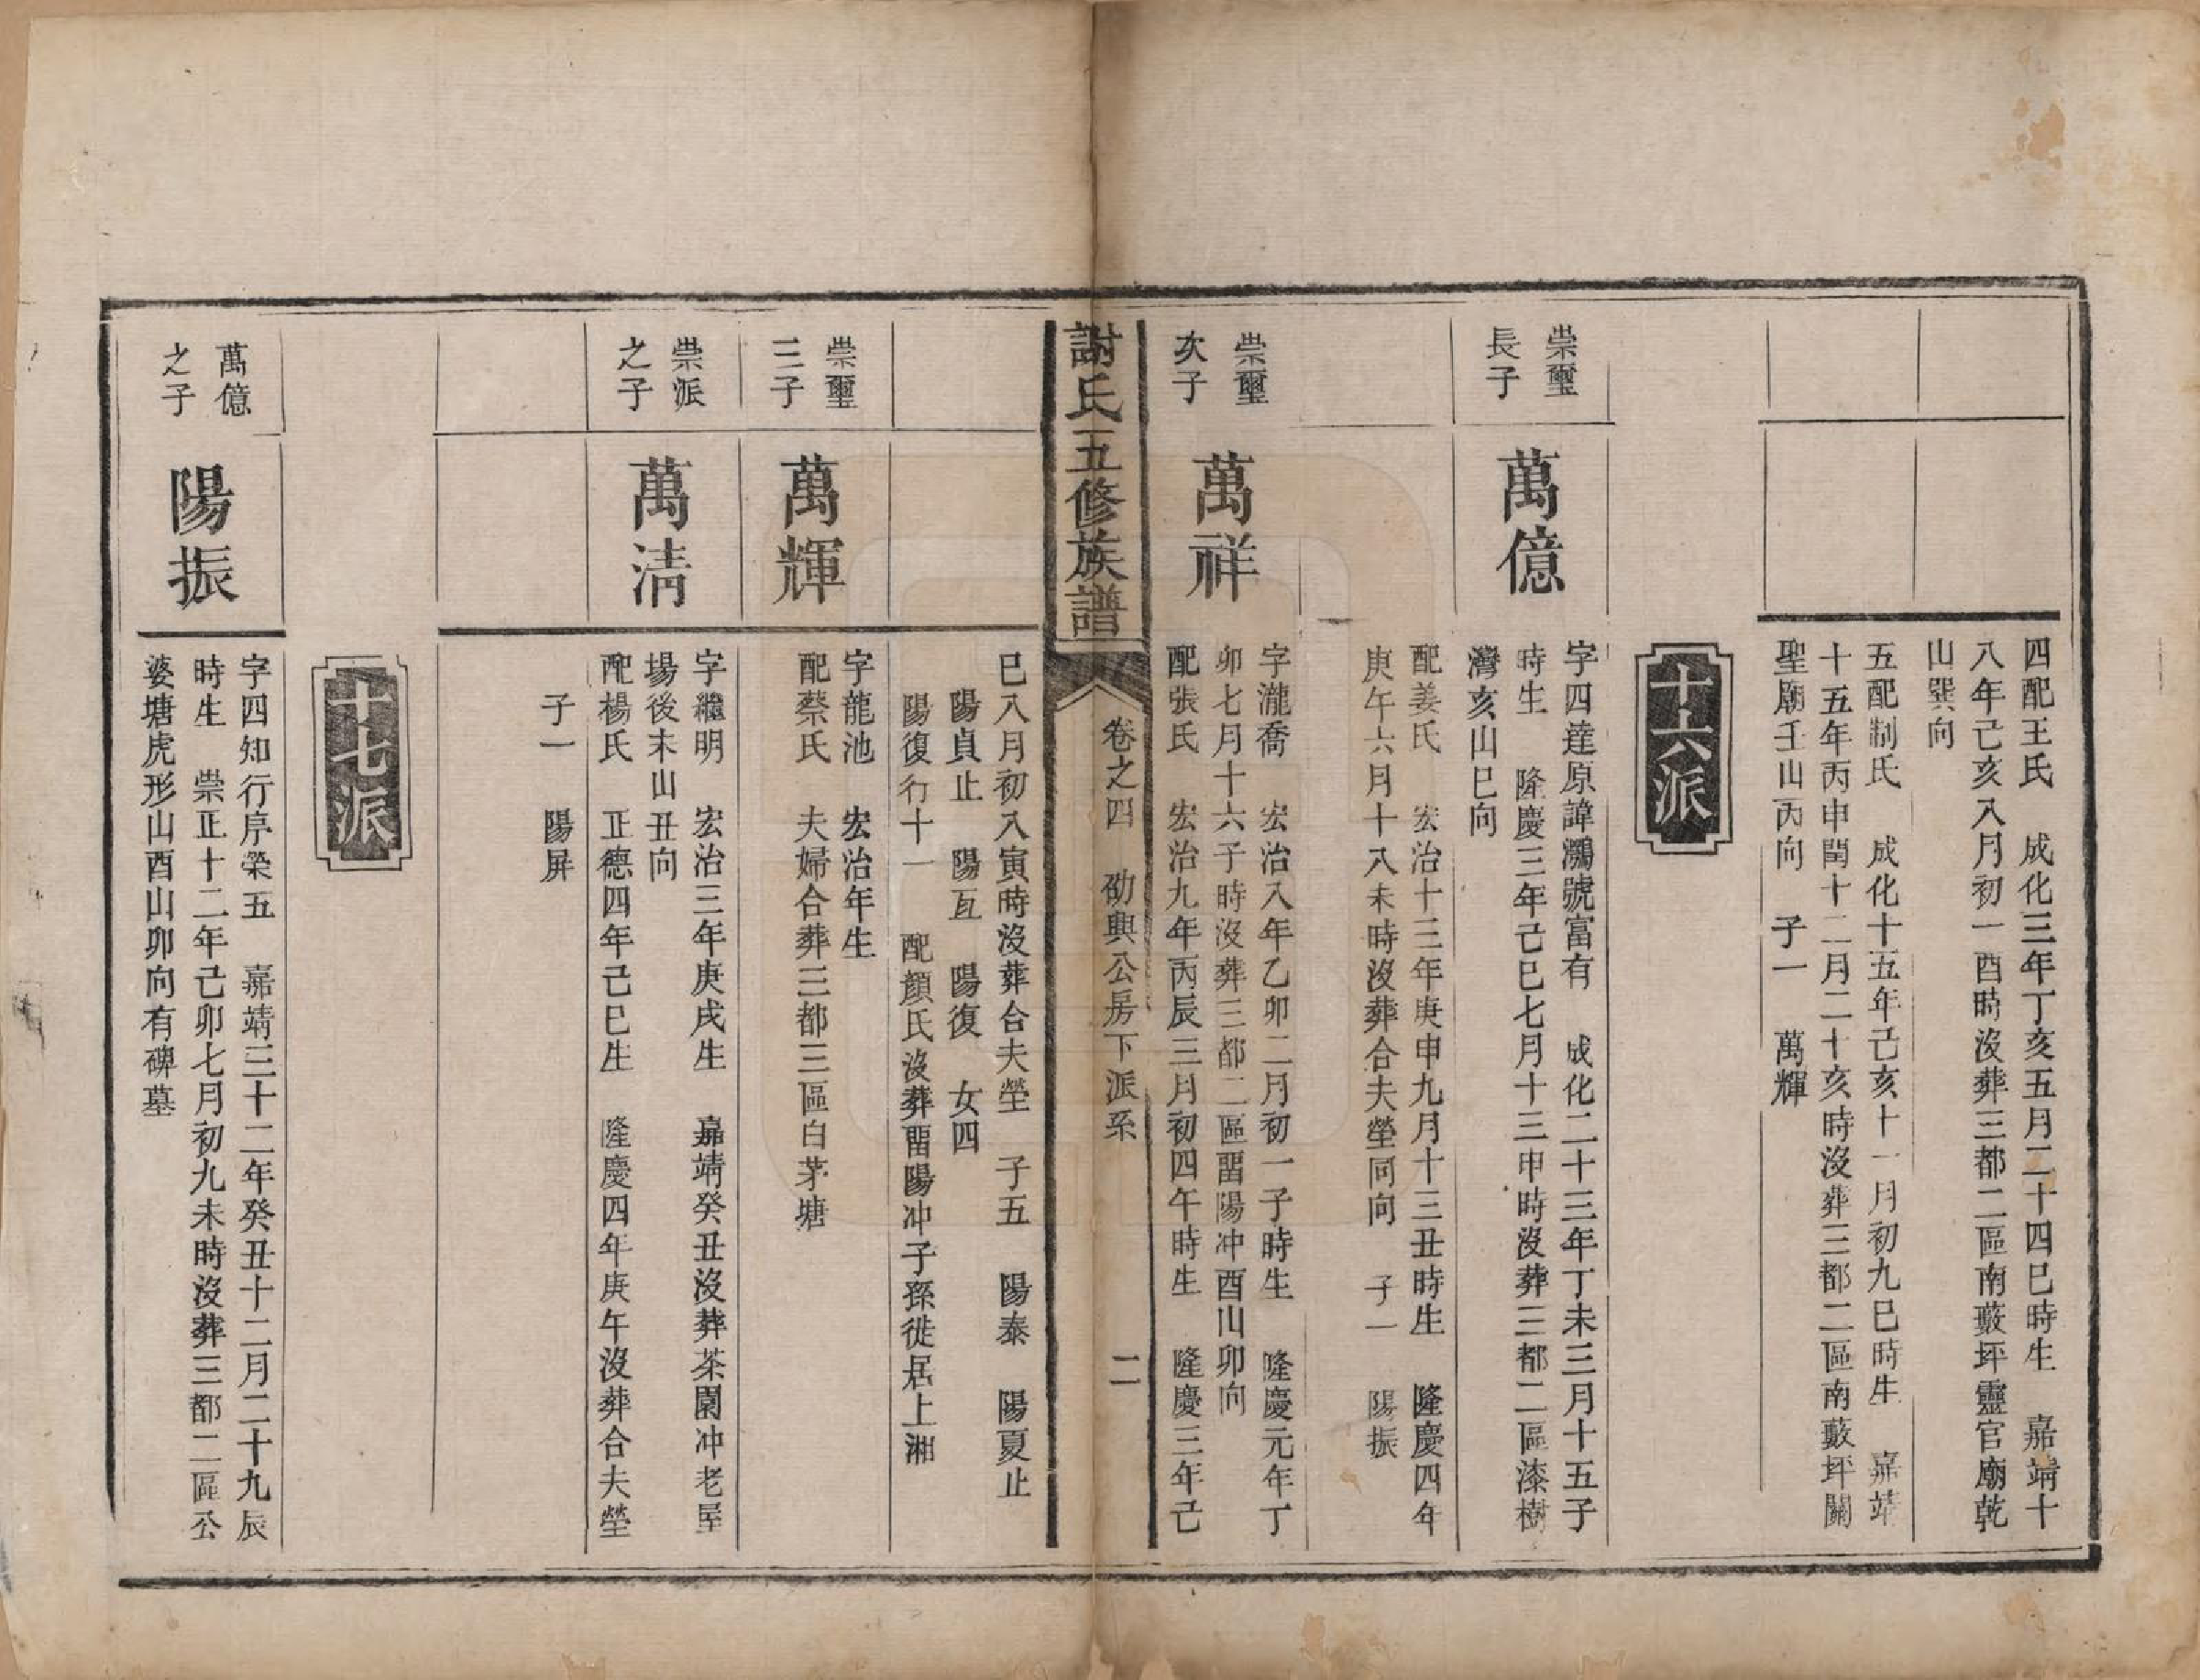 四配王氏　成化三年丁亥五月二十四巳時生　嘉靖十
八年己亥八月初一酉時沒葬三都二區南藪坪靈官廟乾
山巽向
五配制氏　成化十五年己亥十一月初九巳時生　嘉靖
十五年丙申閏十二月二十亥時沒葬三都二區南藪坪關
聖廟壬山丙向　子一　萬輝
十六派
崇璽
長子
萬億
字四達原諱鸂號富有　成化二十三年丁未三月十五子
時生　隆慶三年己巳七月十三申時沒葬三都二區漆樹
灣亥山巳向
配姜氏　宏治十三年庚申九月十三丑時生　隆慶四年
庚午六月十八未時沒葬合夫塋同向　子一　陽振
崇璽
次子
萬祥
字瀧喬　宏治八年乙卯二月初一子時生　隆慶元年丁
卯七月十六子時沒葬三都二區畱陽冲酉山卯向
配張氏　宏治九年丙辰三月初四午時生　隆慶三年己
謝氏五修族譜
卷之四　劭興公房下派系　二
巳八月初八寅時沒葬合夫塋　子五　陽泰　陽夏止
陽貞止　陽亙　陽復　女四
陽復行十一　配顏氏沒葬畱陽冲子孫徙居上湘
崇璽
三子
萬輝
字龍池　宏治年生
配蔡氏　夫婦合葬三都三區白茅塘
崇派
之子
萬清
字繼明　宏治三年庚戌生　嘉靖癸丑沒葬茶園冲老屋
場後未山丑向
配楊氏　正德四年己巳生　隆慶四年庚午沒葬合夫塋
子一　陽屏
十七派
萬億
之子
陽振
字四知行序榮五　嘉靖三十二年癸丑十二月二十九辰
時生　崇正十二年己卯七月初九未時沒葬三都二區公
婆塘虎形山酉山卯向有碑墓